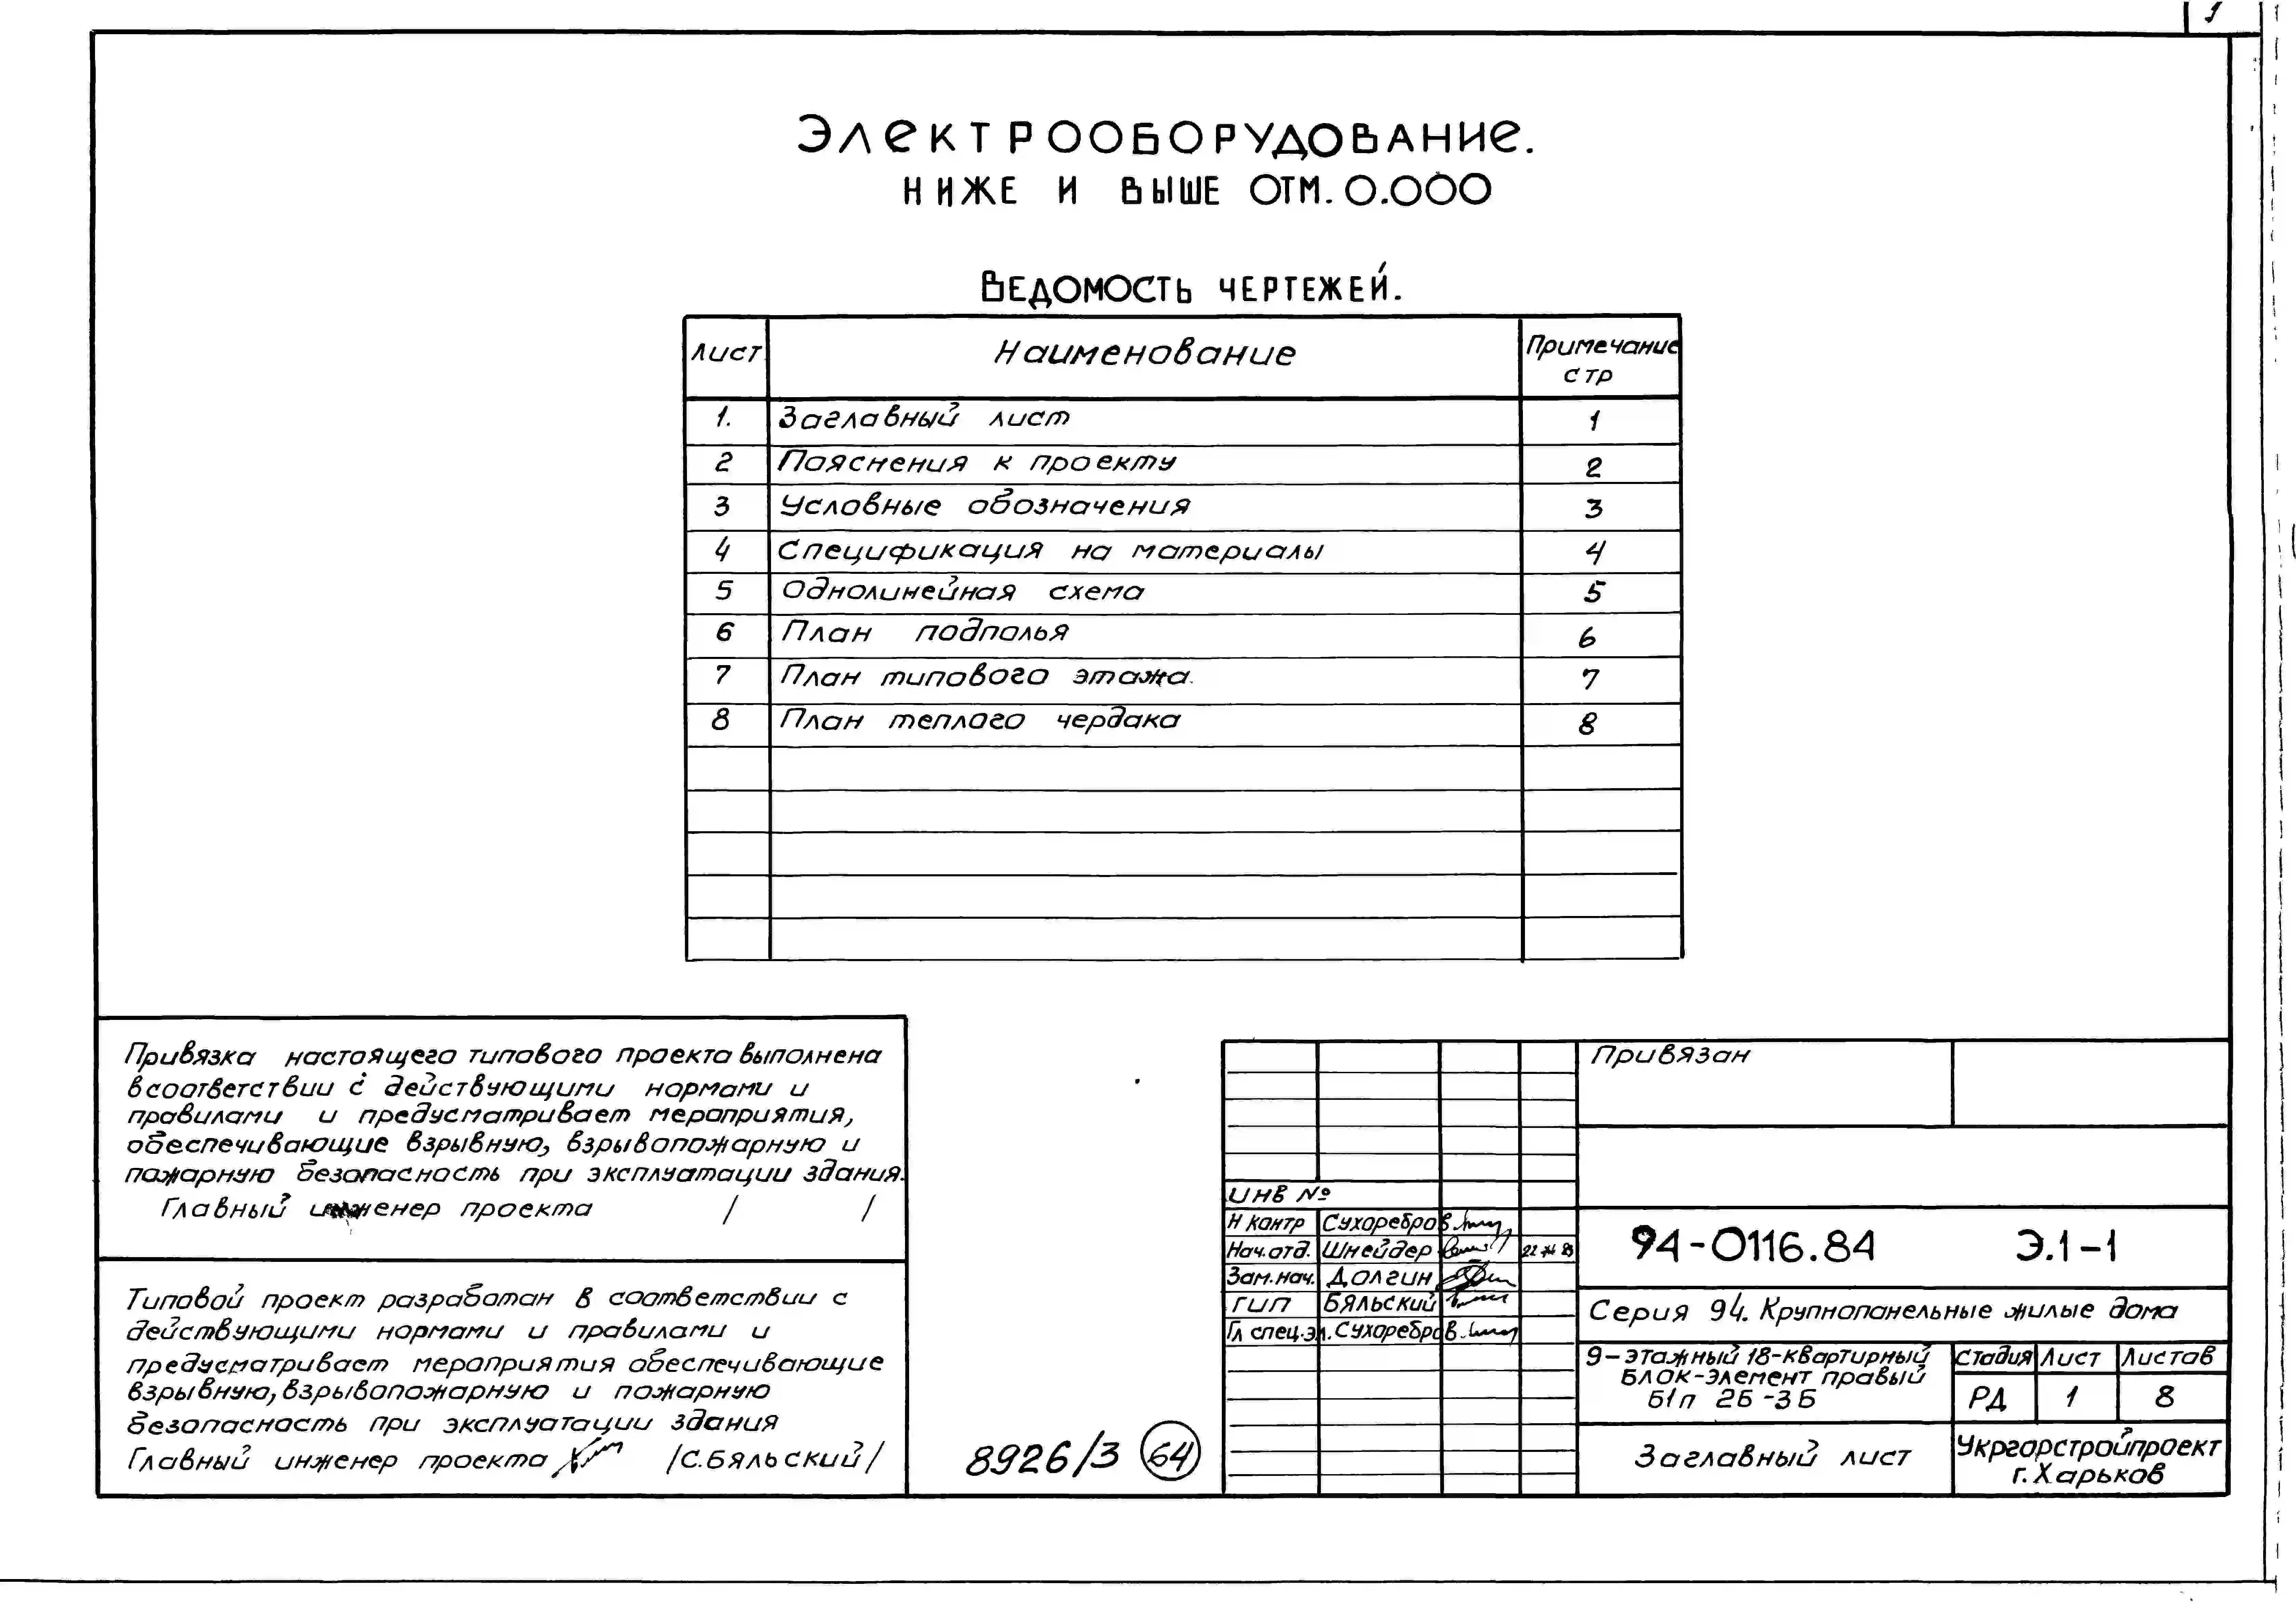 1
Электрооборудование.
ниже и выше отм. 0.000
Ведомость чертежей.
Лист Наименование Примечание стр
1. Заглавный лист 1
2 Пояснения к проекту 2
3 Условные обозначения 3
4 Спецификация на материалы 4
5 Однолинейная схема 5
6 План подполья 6
7 План типового этажа. 7
8 План теплого чердака 8
Привязка настоящего типового проекта выполнена
в соответствии с действующими нормами и
правилами и предусматривает мероприятия,
обеспечивающие взрывную, взрывопожарную и
пожарную безопасность при эксплуатации здания.
Главный инженер проекта / /
Типовой проект разработан в соответствии с
действующими нормами и правилами и
предусматривает мероприятия обеспечивающие
взрывную, взрывопожарную и пожарную
безопасность при эксплуатации здания
Главный инженер проекта /С.Бяльский/
8926/3 64
Привязан
Инв №
Н контр Сухоребров
Нач. отд. Шнейдер
Зам. нач. Долгин
ГИП Бяльский
Гл спец. эл. Сухоребров
94-0116.84 Э.1-1
Серия 94. Крупнопанельные жилые дома
9-этажный 18-квартирный
блок-элемент правый
Б1п 2Б-3Б
Стадия Лист Листов
РД 1 8
Заглавный лист
Укргорстройпроект
г. Харьков